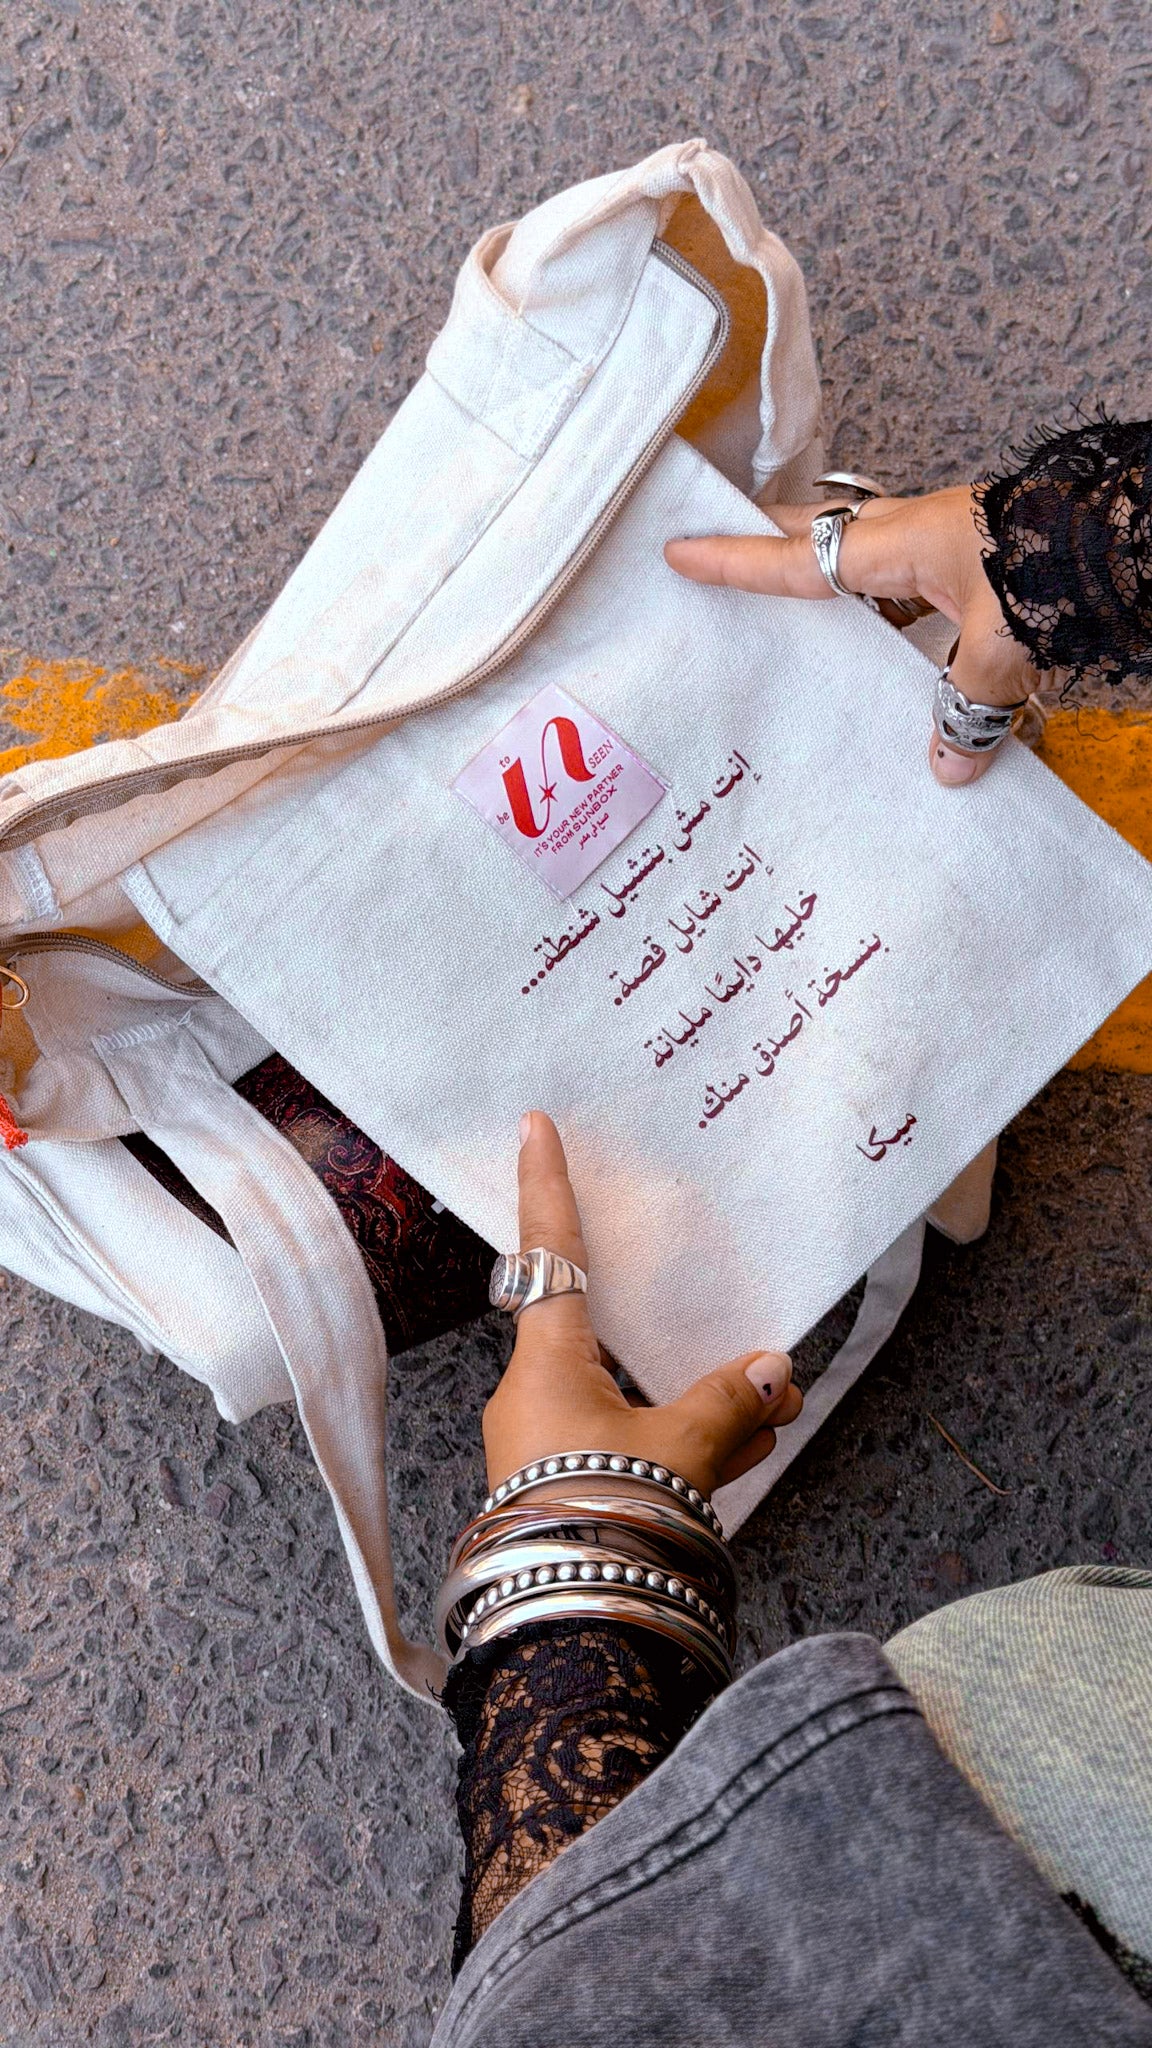 to
be
SEEN
IT'S YOUR NEW PARTNER
FROM SUNBOX
صنع في مصر
إنت مش بتشيل شنطة...
إنت شايل قصة.
خليها دايمًا مليانة
بنسخة أصدق منك.
ميكا